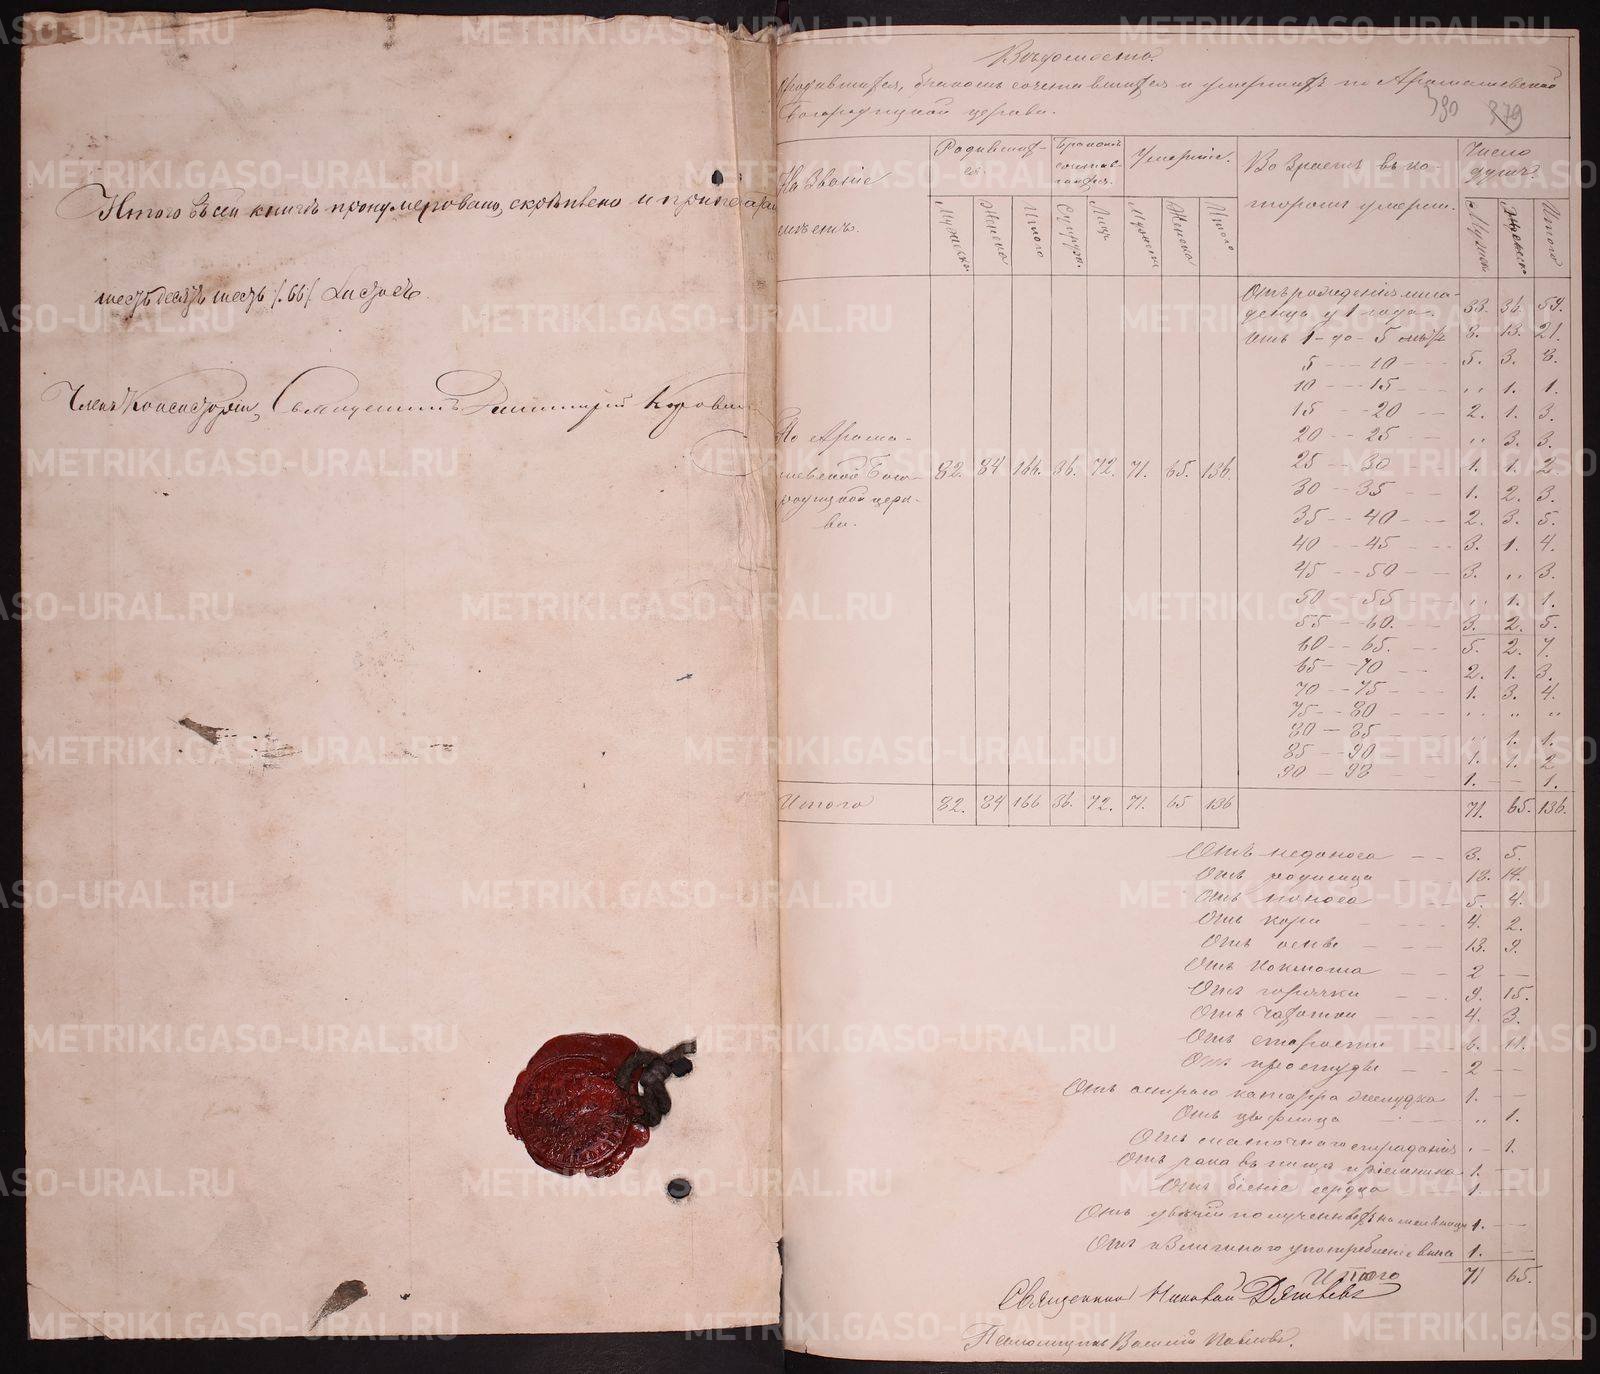 Итого въ сей книгѣ пронумеровано, скрѣплено и припеча
шестьдесятъ шесть /.66/. листовъ.
Членъ Консисторіи, Священникъ Димитрій
Вѣдомость
родившихся, бракомъ сочетавшихся и умершихъ по Арамашевской
Богородицкой церкви.
390 379
Названіе
Родившихся.
Бракомъ сочетавшихся.
Умершіе.
Возрастъ въ ко-
торомъ умерли.
Число душъ.
Мужеска Женска Итого Супруж. Лицъ Мужеска Женска Итого
Мужска Женска Итого
По Арама-
шевской Бого-
родицкой церк-
ви.
82. 84 166. 36. 72. 71. 65. 136.
Отъ рожденія мла-
денцы у 1 года. 33. 36. 59.
Отъ 1 - до - 5 лѣтъ 8. 13. 21.
5 - - - 10 5. 3. 8.
10 - - - 15 " 1. 1.
15 - - 20 2. 1. 3.
20 - - 25 " 3. 3.
25 - - 30 1. 1. 2
30 - - 35 1. 2. 3.
35 - - 40 2. 3. 5.
40 - - 45 3. 1. 4.
45 - - 50 3. " 3.
50 - - 55 " 1. 1.
55 - - 60. 3. 2. 5.
60 - - 65. 5. 2. 7.
65 - - 70 2. 1. 3.
70 - - 75 1. 3. 4.
75 - - 80 " " "
80 - 85 " 1. 1.
85 - - 90 1. 1. 2
90 - 98 1. - - 1.
Итого 82. 84 166 36. 72. 71. 65 136
71. 65. 136.
Отъ недоноса 3. 5.
Отъ родимца 18. 14.
Отъ поноса 5. 4.
Отъ кори 4. 2.
Отъ оспы 13. 9.
Отъ коклюша 2 - -
Отъ горячки 9. 15.
Отъ чахотки 4. 3.
Отъ старости 6. 11.
Отъ простуды 2 - -
Отъ остраго катарра желудка 1. - -
Отъ " 1.
Отъ страданія - 1.
Отъ рака въ 1. -
Отъ біенія сердца 1. -
Отъ полученныхъ на мельницѣ 1. - -
Отъ излишняго употребленія вина 1. - -
Итого 71 65.
Священникъ Николай
Псаломщикъ Василій
METRIKI.GASO-URAL.RU